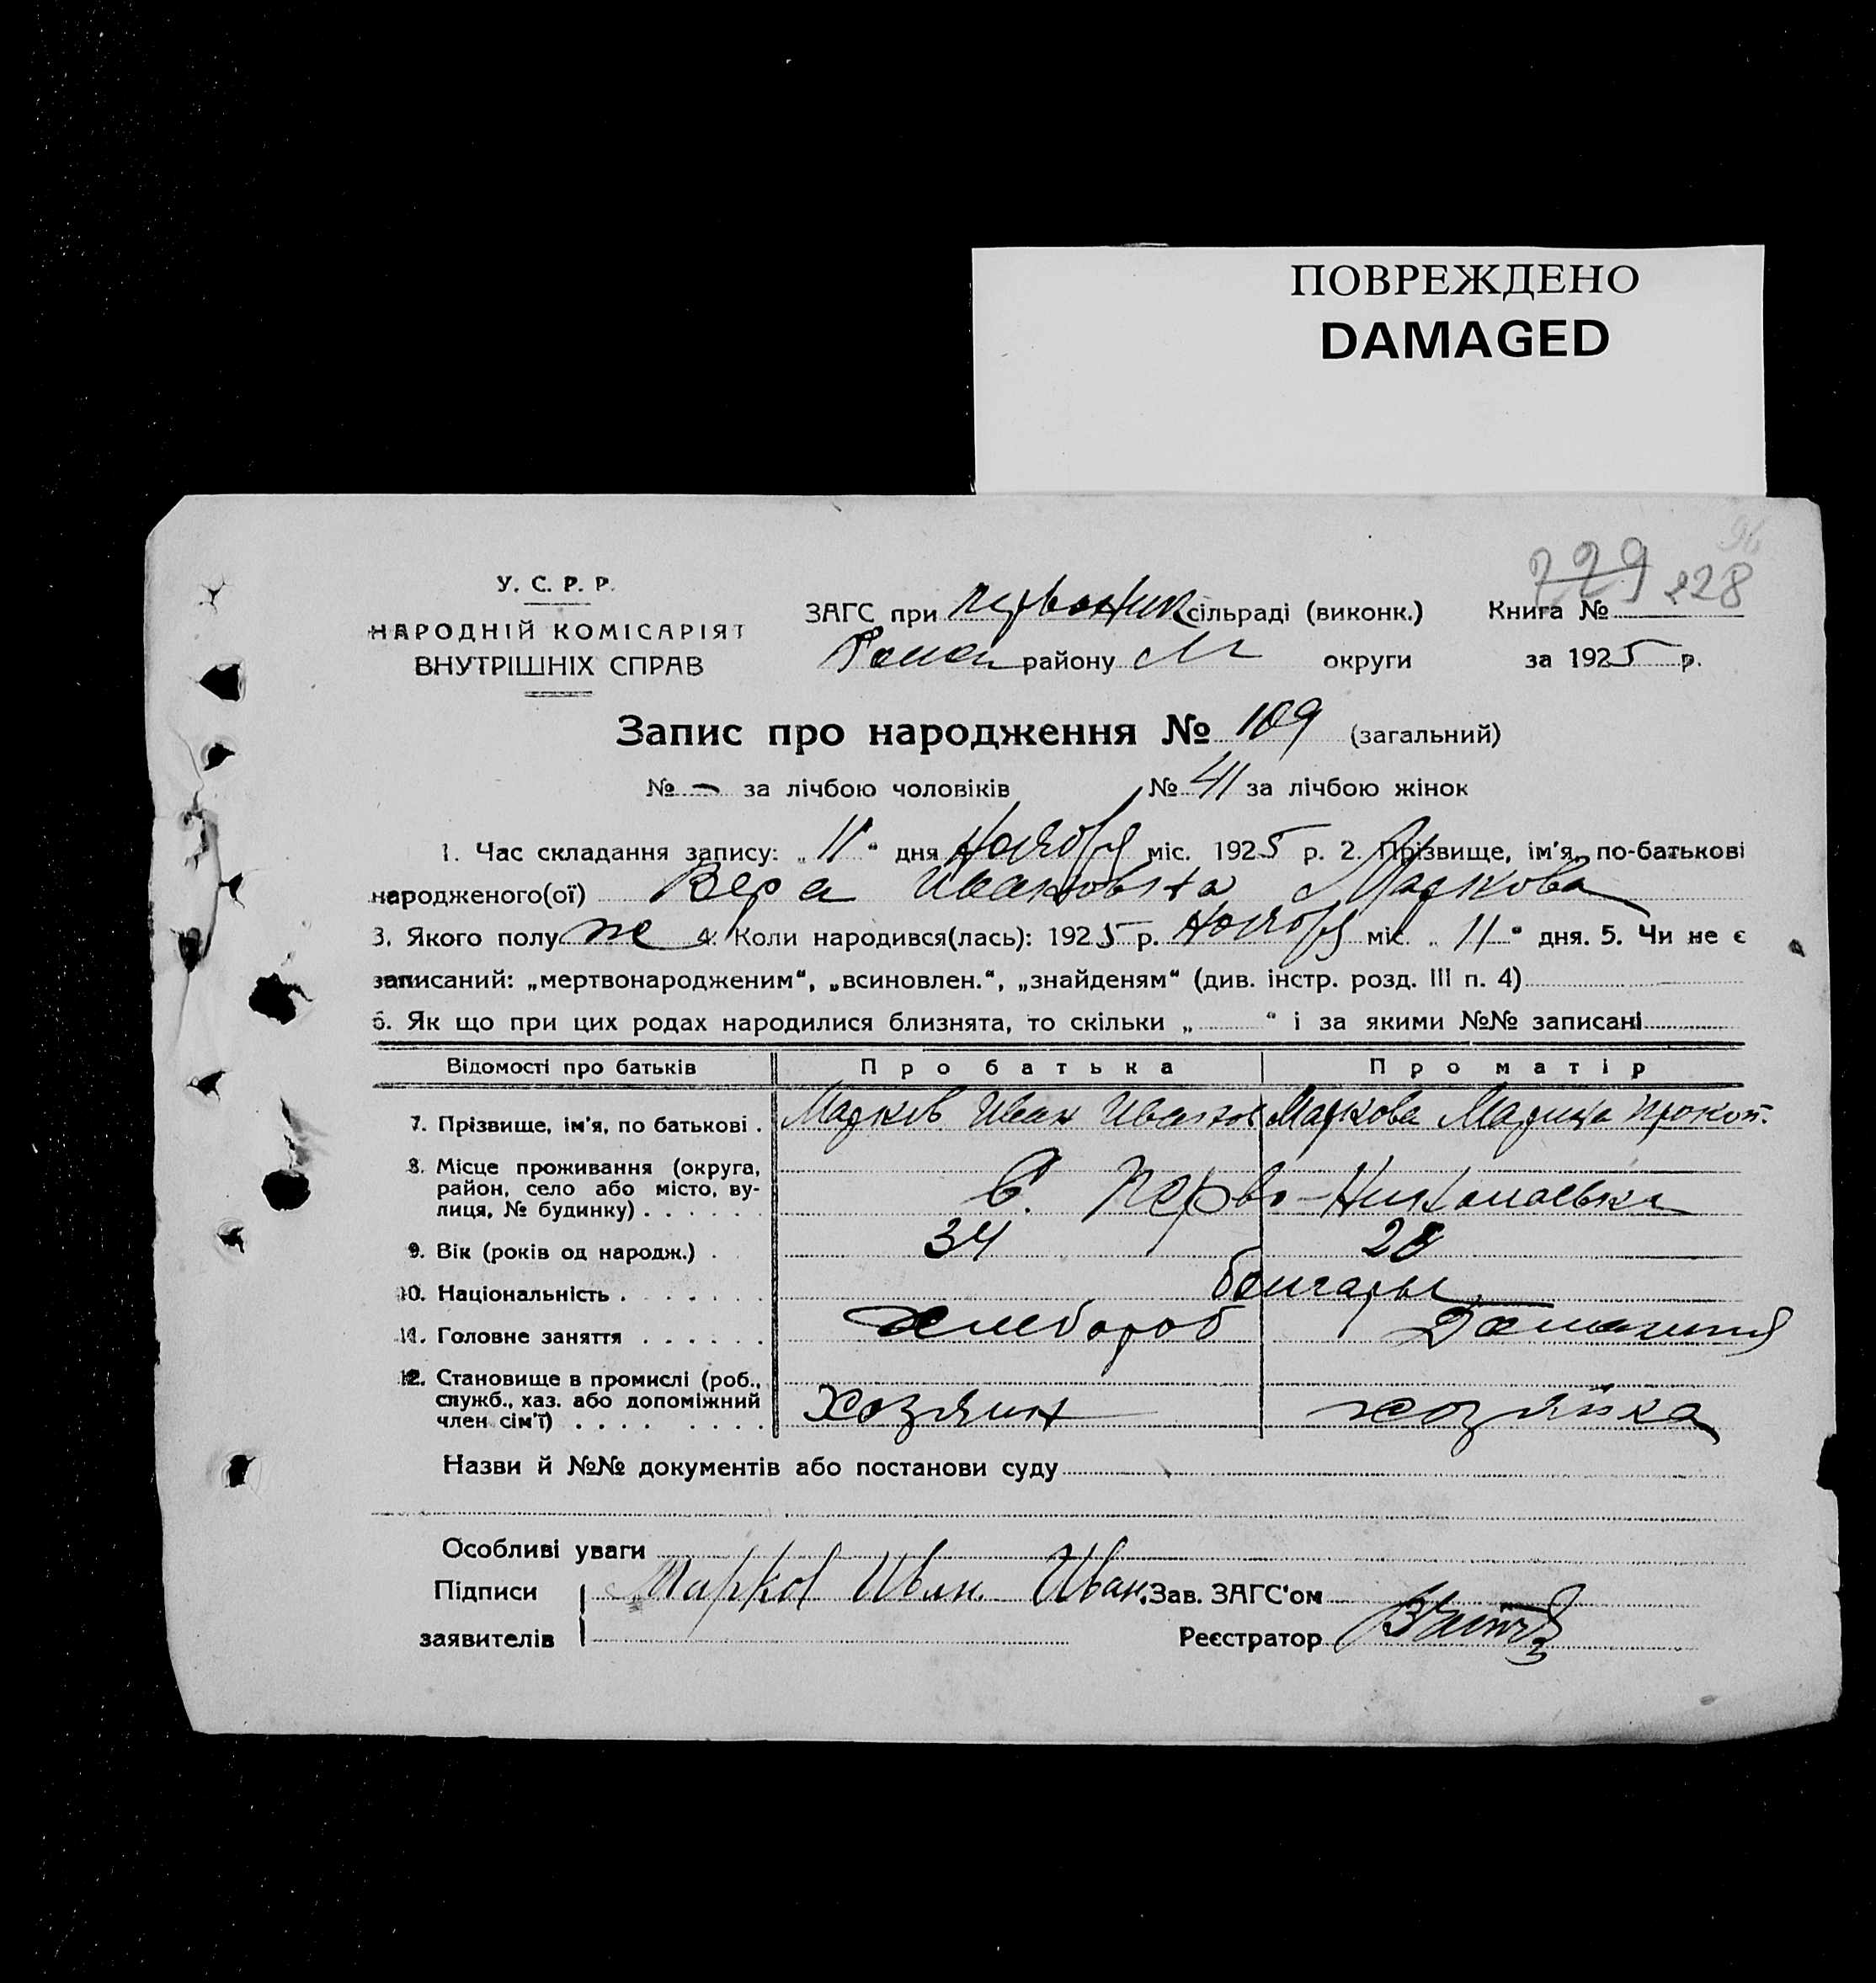 ПОВРЕЖДЕНО
DAMAGED
96
229 228
У. С. Р. Р.
НАРОДНІЙ КОМІСАРІЯТ
ВНУТРІШНІХ СПРАВ
ЗАГС при первоник сільраді (виконк.) Книга №
району М округи за 1925 р.
Запис про народження № 109 (загальний)
№ — за лічбою чоловіків № 41 за лічбою жінок
1. Час складання запису: „11“ дня Ноября міс. 1925 р. 2. Прізвище, ім'я, по-батькові
народженого(ої) Вера Ивановна Маркова
3. Якого полу же 4. Коли народився(лась): 1925 р. Ноября міс. „11“ дня. 5. Чи не є
записаний: „мертвонародженим“, „всиновлен.“, „знайденям“ (див. інстр. розд. III п. 4)
6. Як що при цих родах народилися близнята, то скільки „ “ і за якими №№ записані
Відомості про батьків Про батька Про матір
7. Прізвище, ім'я, по батькові . Марков Иван Иванов Маркова Марина Прокоп.
8. Місце проживання (округа,
район, село або місто, ву-
лиця, № будинку) . . . . . . С. Перво-Николаевка
9. Вік (років од народж.) . 34 28
10. Національність . . . . . . . болгары
11. Головне заняття . . . . . . хлебороб Домашняя
12. Становище в промислі (роб.,
служб., хаз. або допоміжний
член сім'ї) . . . . . . . . хозяин хозяйка
Назви й №№ документів або постанови суду
Особливі уваги
Підписи Марков Иван. Иван. Зав. ЗАГС'ом
заявителів Реєстратор